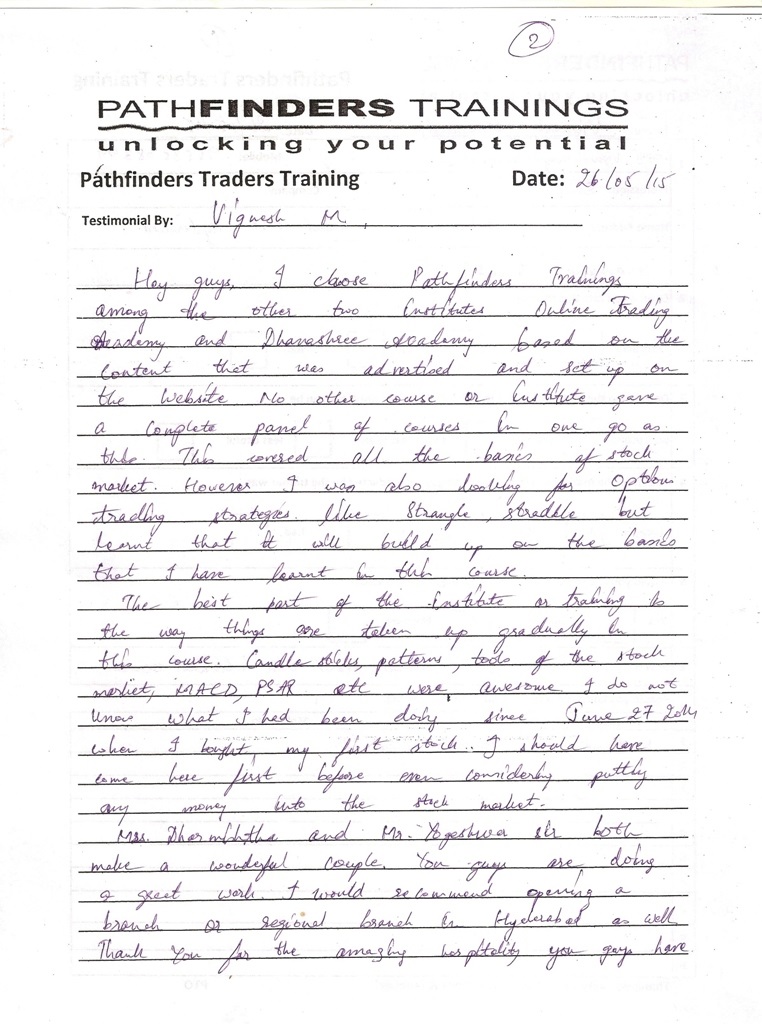 2
PATHFINDERS TRAININGS
unlocking your potential
Pathfinders Traders Training Date: 26/05/15
Testimonial By: Vignesh M.
Hey guys, I choose Pathfinders Trainings
among the other two Institutes Online Trading
Academy and Dhanashree Academy based on the
content that was advertised and set up on
the website No other course or Institute gave
a complete panel of courses in one go as
this. This covered all the basics of stock
market. However I was also looking for Options
trading strategies like Strangle, straddle but
learnt that it will build up on the basics
that I have learnt in this course.
The best part of the institute or training is
the way things are taken up gradually in
this course. Candle sticks, patterns, tools of the stock
market, MACD, PSAR etc were awesome I do not
know what I had been doing since June 27 2014
when I bought my first stock. I should have
come here first before even considering putting
any money into the stock market.
Mrs. and Mr. Yogeshwa sir both
make a wonderful couple. You guys are doing
a great work. I would recommend opening a
branch or regional branch in Hyderabad as well
Thank You for the amazing hospitality you guys have